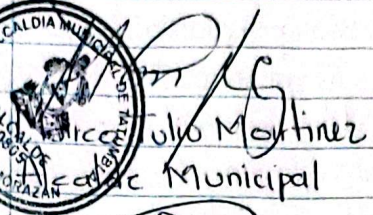 ALCALDIA MUNICIPAL DE TATUMBLA
Marco Tulio Martinez
Alcalde Municipal